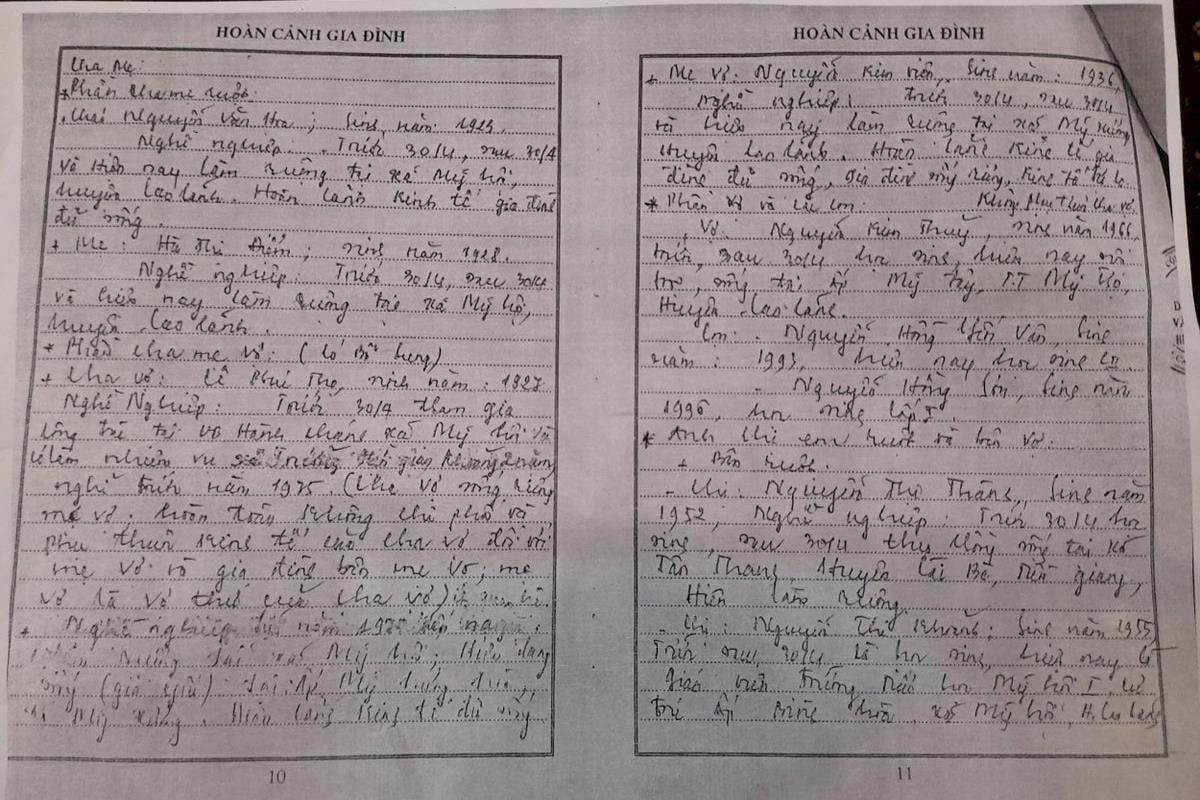 HOÀN CẢNH GIA ĐÌNH
Cha Mẹ:
* Phần cha mẹ ruột:
. Cha: Nguyễn Văn Hoa ; Sinh năm: 1923.
Nghề nghiệp: Trước 30/4, sau 30/4
và hiện nay làm ruộng tại xã Mỹ hội,
huyện Cao lãnh. Hoàn cảnh kinh tế gia đình
đủ sống.
+ Mẹ: Hà Thị Điểm ; sinh năm 1928.
Nghề nghiệp: Trước 30/4, sau 30/4
và hiện nay làm ruộng tại xã Mỹ hội,
huyện Cao lãnh.
* Phần cha mẹ vợ: (có bổ sung)
+ Cha vợ: Lê Phú Thọ, sinh năm: 1927
Nghề Nghiệp: Trước 30/4 tham gia
công tác tại xã Mỹ và
nhiệm vụ
nghỉ trước năm 1975. (Cha vợ sống riêng
mẹ vợ. hoàn toàn không chi phối và
phụ thuộc kinh tế cha vợ đối với
mẹ vợ và gia đình bên mẹ vợ; mẹ
vợ là vợ thứ của cha vợ)
+ Nghề nghiệp năm 1975 đến nay:
ruộng tại xã Mỹ ; Hiện đang
sống (già yếu) tại ấp Mỹ
xã Mỹ xương. Hoàn cảnh kinh tế đủ sống
10
HOÀN CẢNH GIA ĐÌNH
+ Mẹ vợ: Nguyễn Kim . Sinh năm: 1936,
Nghề nghiệp: trước 30/4, sau 30/4
và hiện nay làm ruộng tại xã Mỹ xương
Huyện Cao lãnh. Hoàn cảnh kinh tế gia
đình đủ sống, gia đình sống riêng, kinh tế tự lo
Không phụ thuộc cha vợ.
* Phần vợ và các con:
. Vợ: Nguyễn Kim Thuỷ, sinh năm 1966,
trước, sau 30/4 học sinh, hiện nay nội
trợ, sống tại ấp Mỹ Tây, T.T Mỹ Thọ,
Huyện Cao lãnh.
Con: - Nguyễn Hồng Yến Vân, Sinh
năm: 1993, hiện nay học sinh
- Nguyễn Hồng Sơn, Sinh năm
1996, học sinh lớp
* Anh chị em ruột và bên vợ:
+ Bên ruột.
- Chị: Nguyễn Thị Thắng, Sinh năm
1952, Nghề nghiệp: Trước 30/4 học
sinh, sau 30/4 sống tại xã
Tân Thang, Huyện Cái Bè, Tiền giang,
Hiện làm ruộng.
- Chị: Nguyễn Thị ; Sinh năm 1955
Trước sau 30/4 là học sinh, hiện nay là
giáo viên trường Mỹ hội I. cư
trú ấp hòa, xã Mỹ hội, H. Cao lãnh
11